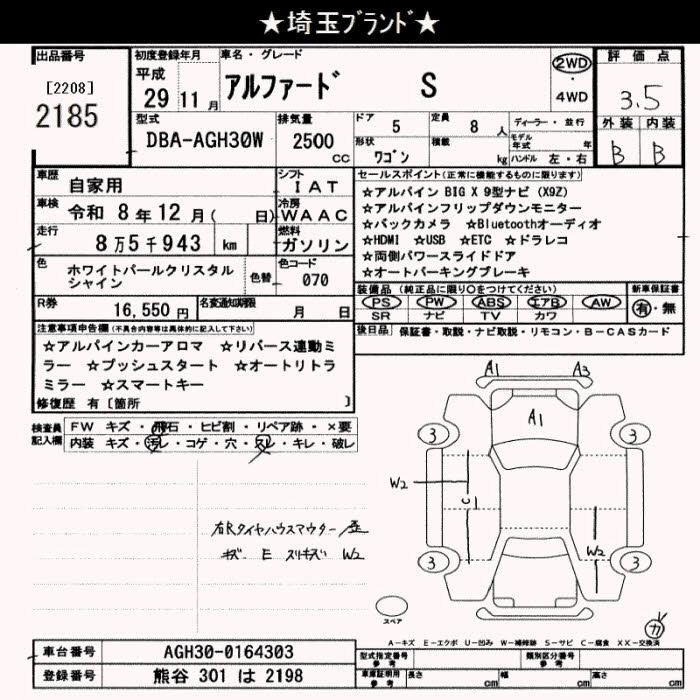 ★埼玉ﾌﾞﾗﾝﾄﾞ★
出品番号
[2208]
2185
初度登録年月
平成
29 11 月
車名・グレード
アルファード S
2WD
・
4WD
評価点
3.5
外装 内装
B B
型式
DBA-AGH30W
排気量
2500
CC
ドア
5
定員
8 人
形状
ワゴン
積載
kg
ディーラー・並行
モデル年式 年
ハンドル 左・右
車歴
自家用
シフト
IAT
車検
令和 8 年 12 月( 日)
冷房
WAAC
走行
8 万 5 千 943 km
燃料
ガソリン
色
ホワイトパールクリスタル
シャイン
色替
色コード
070
R券
16,550 円
名変通知期限
月 日
セールスポイント(正常に機能するものに限ります)
☆アルパイン BIG X 9型ナビ (X9Z)
☆アルパインフリップダウンモニター
☆バックカメラ ☆Bluetoothオーディオ
☆HDMI ☆USB ☆ETC ☆ドラレコ
☆両側パワースライドドア
☆オートパーキングブレーキ
装備品(純正品に限り○をつけてください)
新車保証書
PS PW ABS エアB AW
SR ナビ TV カワ
有・無
後日品 保証書・取説・ナビ取説・リモコン・B-CASカード
注意事項申告欄(不具合内容等は具体的に記入して下さい)
☆アルパインカーアロマ ☆リバース連動ミ
ラー ☆プッシュスタート ☆オートリトラ
ミラー ☆スマートキー
修復歴 有〔箇所 〕
検査員
記入欄
FW キズ・飛石・ヒビ割・リペア跡・×要
内装 キズ・汚レ・コゲ・穴・スレ・キレ・破レ
キズ E スリキズ W2
A1 A3
A1
3 3
W2
C1
W2
3 3
スペア
ガ
A-キズ E-エクボ U-凹み W-補修跡 S-サビ C-腐食 XX-交換済
車台番号
AGH30-0164303
登録番号
熊谷 301 は 2198
型式指定番号
参考
類別区分番号
参考
車庫証明用
参考
長さ cm
幅 cm
高さ cm